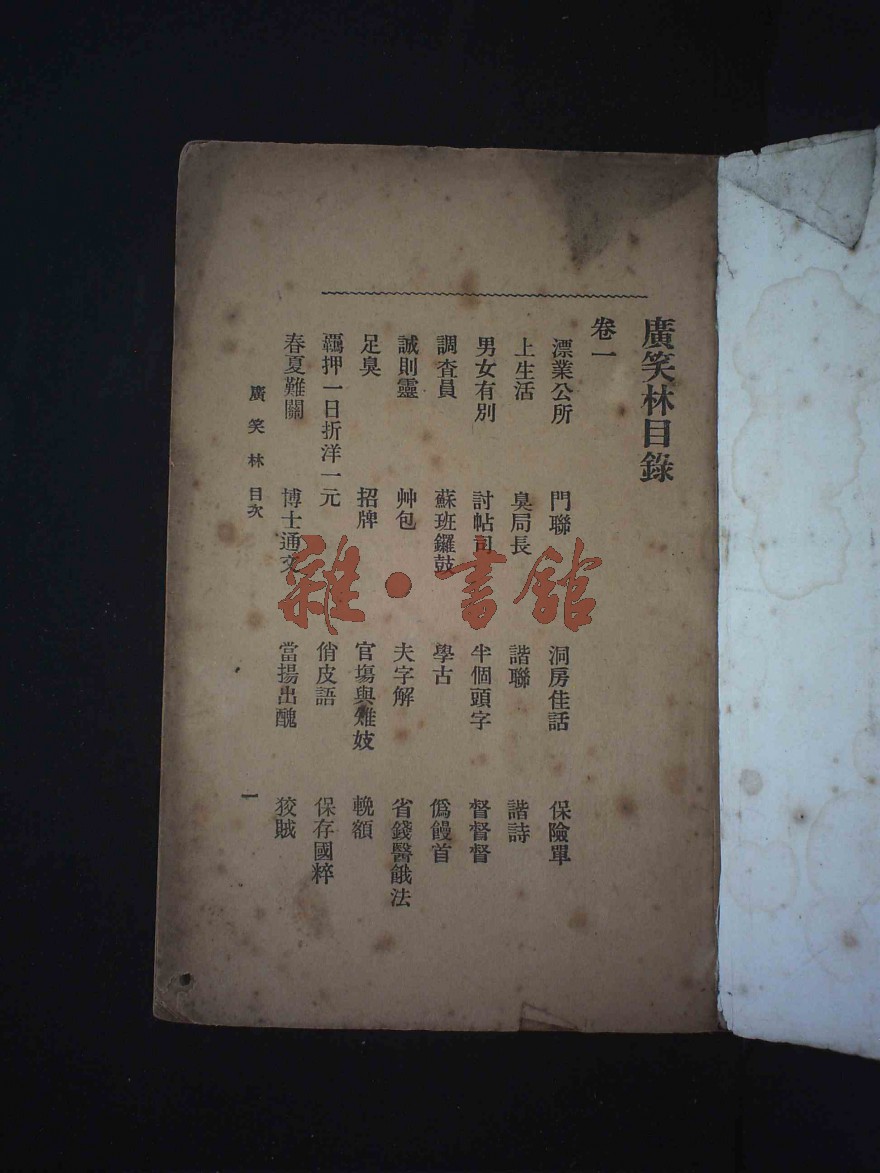 廣笑林目錄
卷一
漂業公所　門聯　洞房佳話　保險單
上生活　臭局長　諧聯　諧詩
男女有別　討帖司　半個頭字　督督督
調查員　蘇班鑼鼓　學古　僞饅首
誠則靈　艸包　夫字解　省錢醫餓法
足臭　招牌　官塲與雉妓　輓額
羈押一日折洋一元　俏皮語　保存國粹
春夏難關　博士通文　當揚出醜　狡賊
廣笑林目次
一
雜·書館